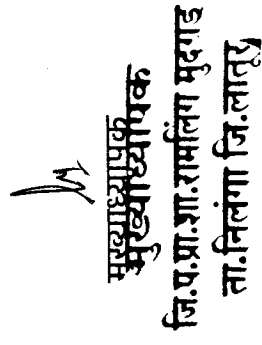 मुख्याध्यापक
मुख्याध्यापक
जि.प.प्रा.शा.रामलिंग मुदगड
ता.निलंगा जि.लातूर